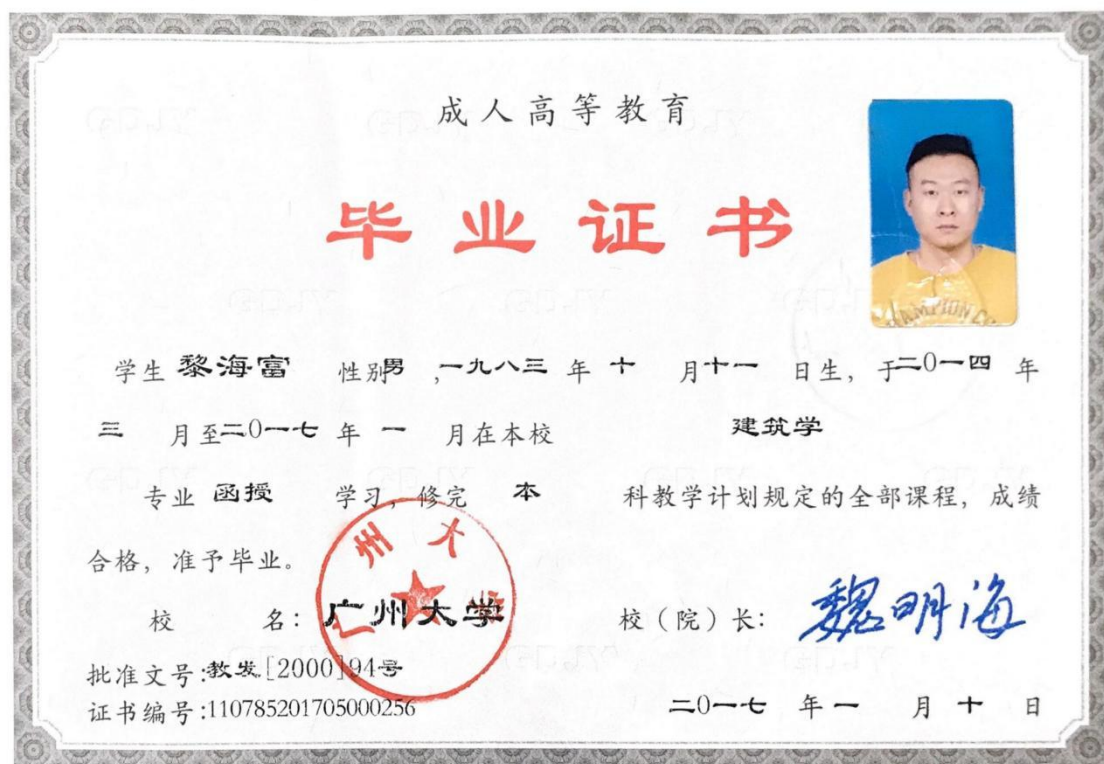 成人高等教育
毕业证书
学生 黎海富 性别男 ,一九八三 年 十 月十一 日生, 于二0一四 年
三 月至二0一七 年 一 月在本校 建筑学
专业 函授 学习, 修完 本 科教学计划规定的全部课程, 成绩
合格, 准予毕业。
校 名: 广州大学 校(院)长: 魏明海
批准文号:教发[2000]94号
证书编号:110785201705000256 二0一七 年 一 月 十 日
广州大学